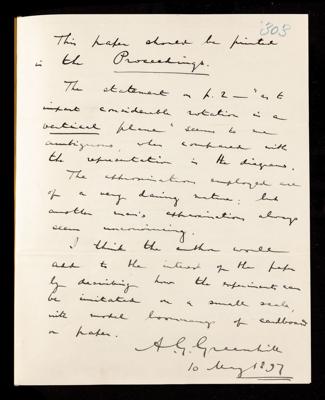 303
This paper should be printed
in the Proceedings.
The statement on p. 2 — "as to
impart considerable rotation in a
vertical plane" seems to me
ambiguous, when compared with
the representation in the diagrams.
The approximations employed are
of a very daring nature; but
another man's approximations always
seem unconvincing.
I think the author would
add to the interest of the paper
by describing how the experiments can
be imitated on a small scale,
with model boomerangs of cardboard
or paper.
A. G. Greenhill
10 May 1897